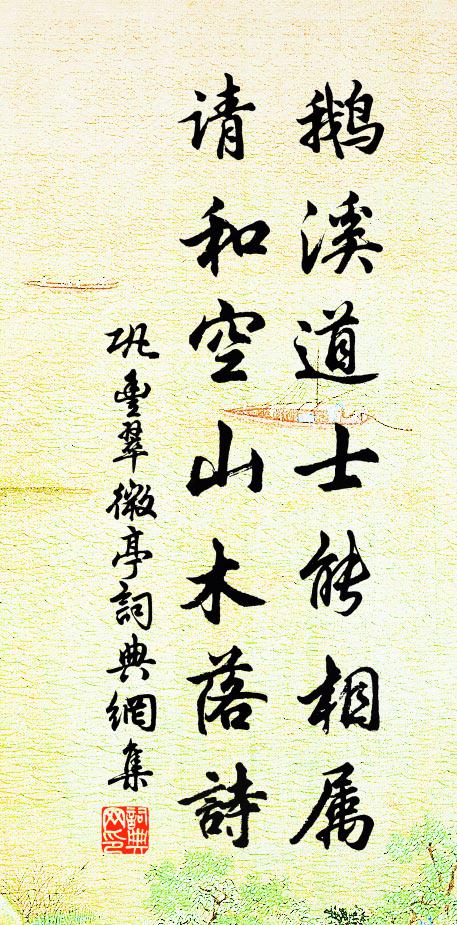 鹅溪道士能相属
请和空山木落詩
巩豊翠微亭詞典網集
詞典网印